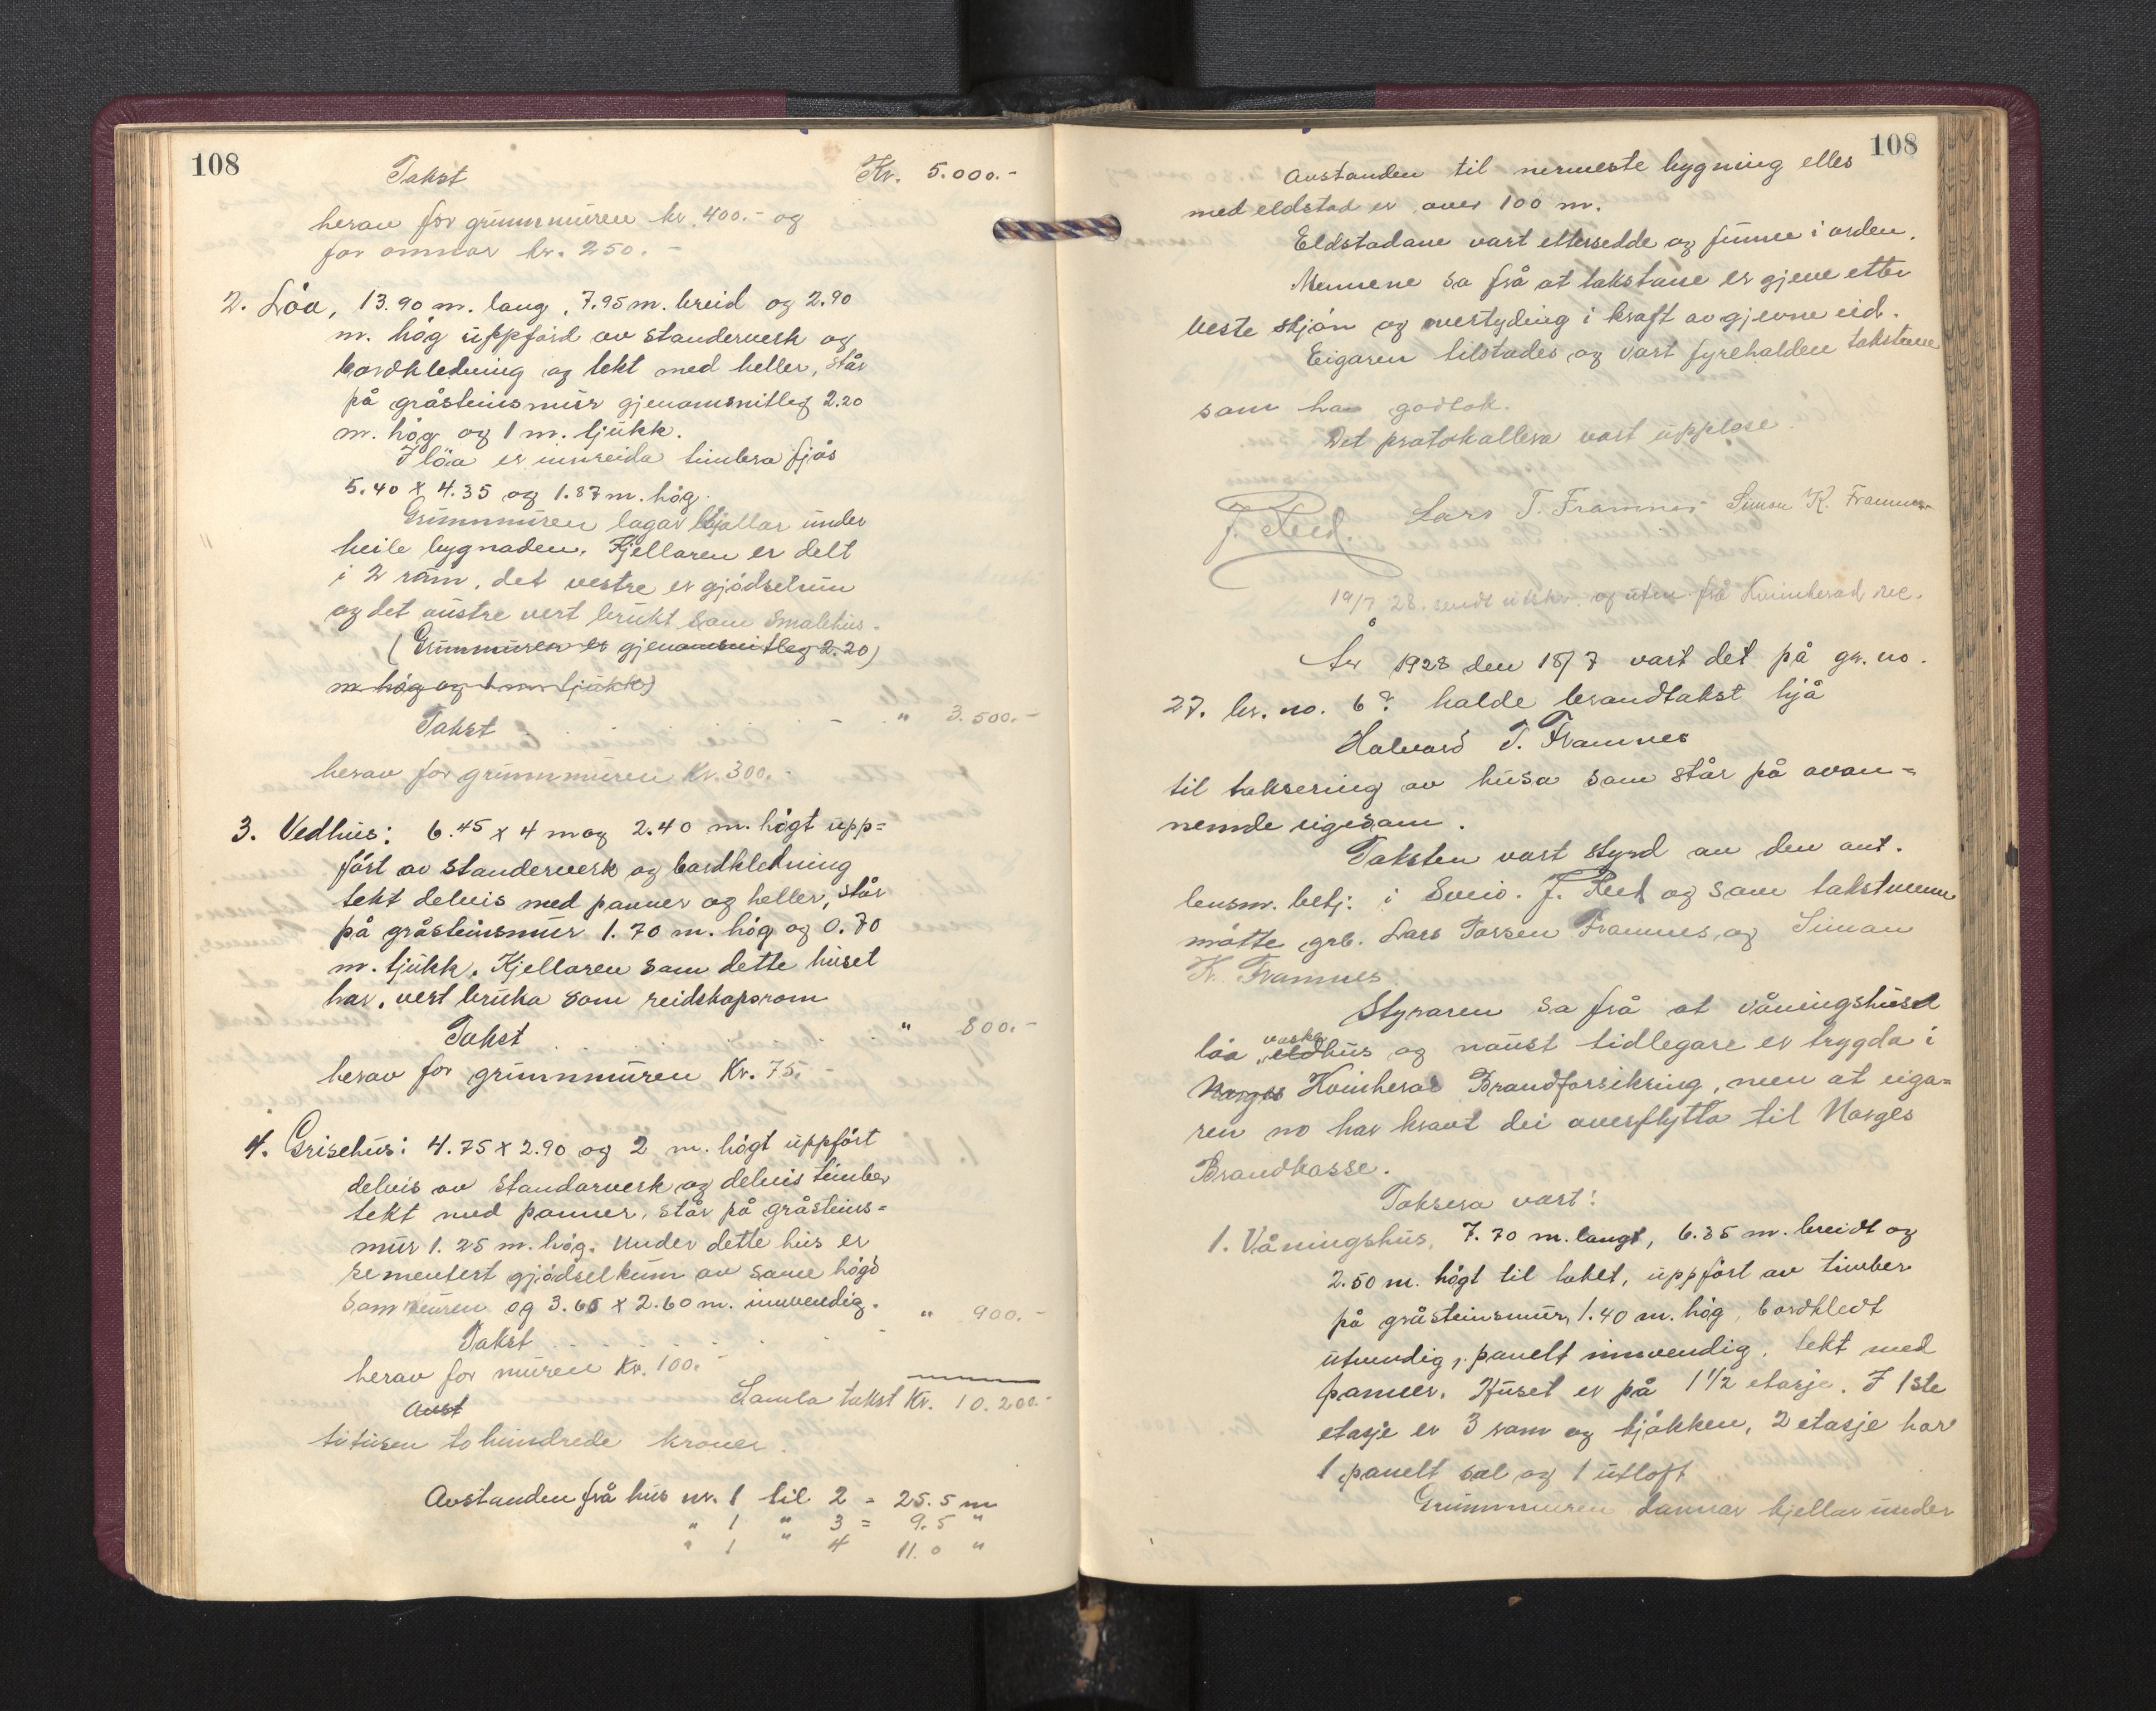 108
Takst Kr. 5.000.-
herav for grunnmuren kr. 400.- og
for omnar kr. 250.-
2. Löa, 13.90 m. lang, 7.95 m. breid og 2.90
m. høg uppförd av standerverk og
bordkledning og tekt med heller, står
på gråsteinsmur gjenomsnitleg 2.20
m. høg og 1 m. tjukk.
I löa er innreida timbra fjös
5.40 x 4.35 og 1.87 m. høg.
Grunnmuren lagar kjellar under
heile bygnaden. Kjellaren er delt
i 2 rom, det vestre er gjödselrum
og det austre vert brukt som smalehus.
(Grunnmuren er gjenomsnitleg 2.20)
m. høg og 1 m. tjukk)
Takst . . . . - " 3.500.-
herav for grunnmuren Kr. 300.-
3. Vedhus: 6.45 x 4 m og 2.40 m. högt upp=
fört av standerverk og bordkledning
tekt delvis med panner og heller, står
på gråsteinsmur 1.70 m. høg og 0.70
m. tjukk. Kjellaren som dette huset
har, vert bruka som reidskapsrom
Takst . . . . " 800.-
herav for grunnmuren Kr. 75.-
4. Grisehus: 4.75 x 2.90 og 2 m. högt uppfört
delvis av standarverk og delvis timber
tekt med panner, står på gråsteins=
mur 1.25 m. høg. Under dette hus er
sementert gjödselkum av same högd
som muren og 3.65 x 2.60 m. innvendig.
Takst . . . . " 900.-
herav for muren Kr. 100.-
Avst Samla takst Kr. 10.200.-
titusen tohundrede kroner.
Avstanden frå hus nr. 1 til 2 = 25.5 m
" 1 " 3 = 9.5 "
" 1 " 4 11.0 "
108
Avstanden til nermeste bygning elles
med eldstad er over 100 m.
Eldstadane vart ettersedde og funne i orden.
Mennene sa frå at takstane er gjeve etter
beste skjön og overtyding i kraft av gjevne eid.
Eigaren tilstades og vart fyrehalden takstane
som han godtok.
Det protokollera vart upplese.
J. Reed. Lars T. Framnes Simon K. Framnes
19/7 28. sendt utskr. og utm. frå Kvinherad
År 1928 den 18/7 vart det på gr. no.
27. br. no. 6? halde brandtakst hjå
Halvard T. Framnes
til taksering av husa som står på ovan=
nemnde eigedom.
Taksten vart styrd av den aut.
lensm. betj. i Sveio. J. Reed og som takstmenn
mötte grb. Lars Torsen Framnes og Simon
K. Framnes.
Styraren sa frå at våningshuset
vaske
löa, eldhus og naust tidlegare er trygda i
Norges Kvinherad Brandforsikring, men at eiga=
ren no har kravt dei overflytta til Norges
Brandkasse.
Taksera vart:
1. Våningshus, 7.70 m. langt, 6.35 m. breidt og
2.50 m. högt til taket, uppfört av timber
på gråsteinsmur, 1.40 m. høg, bordkledt
utvendig, panelt innvendig, tekt med
panner. Huset er på 1 1/2 etasje. I 1ste
etasje er 3 rom og kjökken, 2 etasje har
1 panelt sal og 1 utloft
Grunnmuren dannar kjellar under